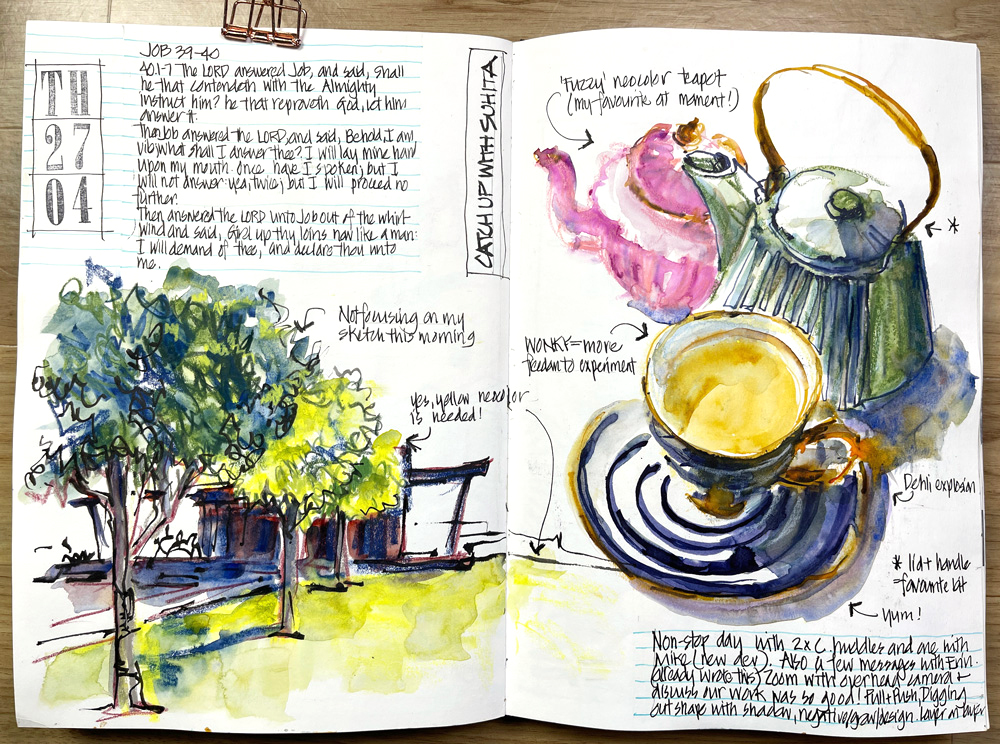 TH
27
04
JOB 39-40
40:1-7 The LORD answered Job, and said, shall
he that contendeth with the Almighty
instruct him? he that reproveth God, let him
answer it.
Then Job answered the LORD, and said, Behold, I am
vile; what shall I answer thee? I will lay mine hand
upon my mouth. Once have I spoken; but I
will not answer: yea, twice; but I will proceed no
further.
Then answered the LORD unto Job out of the whirl-
wind and said, Gird up thy loins now like a man:
I will demand of thee, and declare thou unto
me.
CATCH UP WITH SUHITA
Not focusing on my
sketch this morning
yes, yellow neocolor
is needed!
'Fuzzy' neocolor teapot
(my favourite at moment!)
*
WONKY = more
freedom to experiment
Dehli explosion
* lid + handle
favourite bit
Yum!
Non-stop day with 2x C. huddles and one with
Mike (new dev). Also a few messages with Erin.
(already wrote this) Zoom with overhead camera +
discuss our work was so good! Pull + Push, Digging
out shape with shadow, negative/gray/design. layer on layer